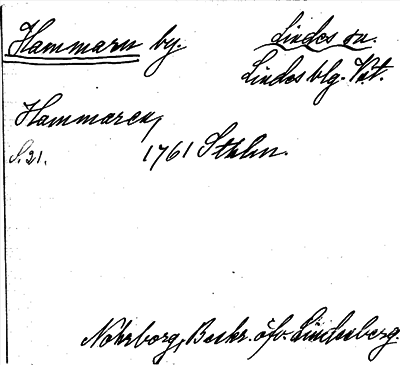 Hammarn by. Lindes sn.
Lindesblg. Vät.
Hammaren,
S. 21. 1761 Sthlm.
Nohrborg, Beskr. öfv. Lindesberg.